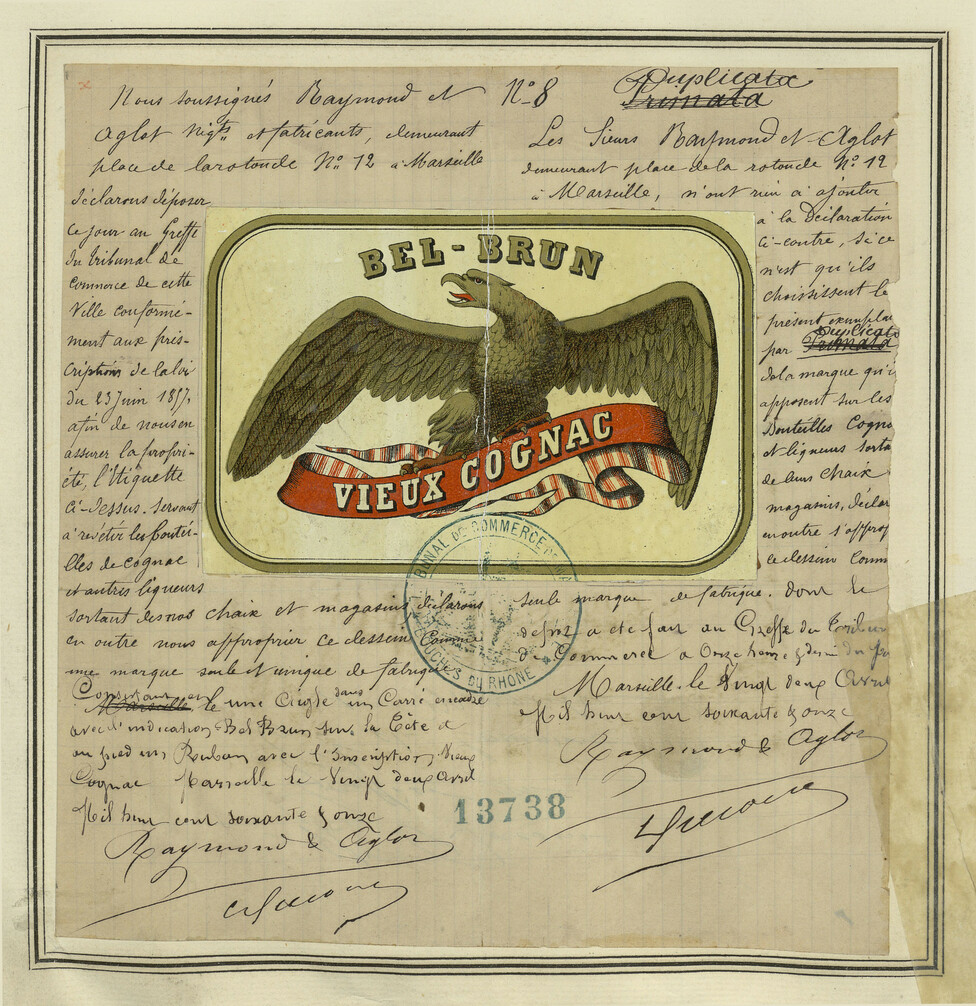 Nous soussignés Raymond et
Aglot Nigts et fabricants, demeurant
place de la rotonde No 12 à Marseille
déclarons déposer
ce jour au Greffe
du tribunal de
commerce de cette
Ville conformé-
ment aux pres-
criptions de la loi
du 23 juin 1857,
afin de nous en
assurer la propri-
été, l'Etiquette
ci-dessus. servant
à revêtir les boutei-
lles de cognac
et autres liqueurs
sortant de nos chaix et magasins, déclarons
en outre nous approprier ce dessein comme
une marque seule et unique de fabrique
Consistant en
Marseille le une Aigle dans un Carré encadré
avec l'indication Bel Brun sur la Tête et
au pied un Ruban avec l'Inscription Vieux
Cognac Marseille le Vingt deux Avril
Mil huit cent soixante & onze
Raymond & Aglot
No 8
Duplicata
Primata
Les Sieurs Raymond et Aglot
demeurant place de la rotonde No 12
à Marseille, n'ont rien à ajouter
à la Déclaration
ci-contre, si ce
n'est qu'ils
choisissent le
présent exemplai
par Duplicata
Primata
de la marque qu'i
apposent sur les
Bouteilles Cogna
et liqueurs sorta
de leurs chaix
magasins, déclar
en outre s'approp
ce dessein comm
seule marque de fabrique. dont le
dépôt a été fait au Greffe du Tribun
de Commerce à Onze heures & demie du
Marseille le Vingt deux Avril
Mil huit cent soixante & onze
Raymond & Aglot
BEL-BRUN
VIEUX COGNAC
BUNAL DE COMMERCE
BOUCHES DU RHONE
13738